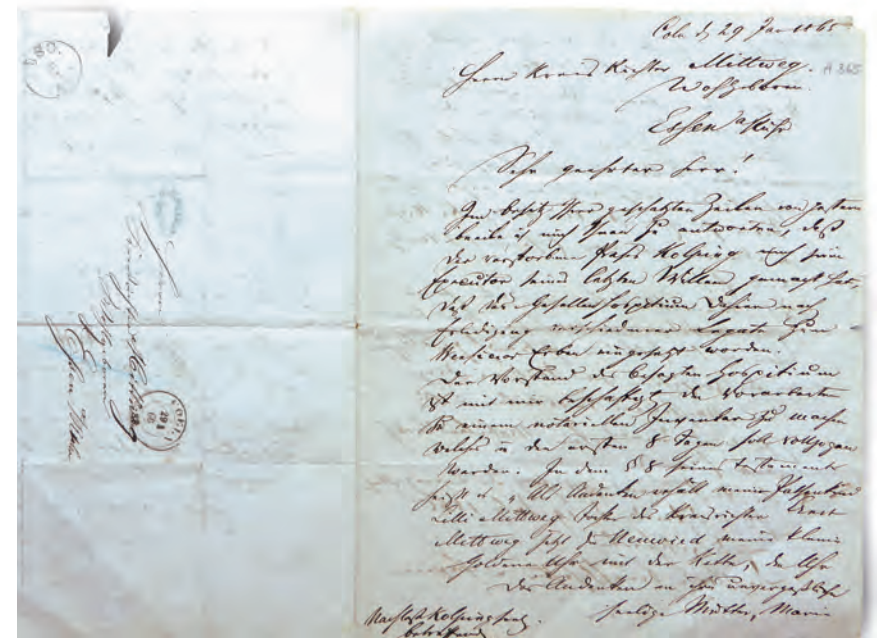 Cöln d. 29 Jan 1865
A 365
Herrn Kreis Richter Mittweg.
Wohlgeboren.
Essen a/Ruhr
Sehr geehrter Herr!
Im Besitz Ihrer geschätzten Zeilen von gestern
beeile ich mich Ihnen zu antworten, daß
der verstorbene Präses Kolping mich zum
Executor seines letzten Willens gemacht hat,
daß das Gesellenhospitium dahier nach
Erledigung verschiedener Legate zum
Universal Erben eingesetzt worden.
Der Vorstand des besagten Hospitium
ist mit mir beschäftigt die Vorarbeiten
zu einem notariellen Inventar zu machen
welches in den ersten 8 Tagen soll vollzogen
werden. In dem § 8 seines Testaments
heißt es „Als Andenken erhält meine Pathenkind
Lilli Mittweg Tochter des Kreisrichters
Mittweg jetzt zu Neuwied meine kleine
goldene Uhr mit der Kette, die Uhr
des Andenken an ihre unvergeßliche
seelige Mutter, Maria
Nachlaß Kolping seel.
betreffend
Herrn
Kreisrichter Mittweg
Wohlgeboren
Essen
COELN
29 1